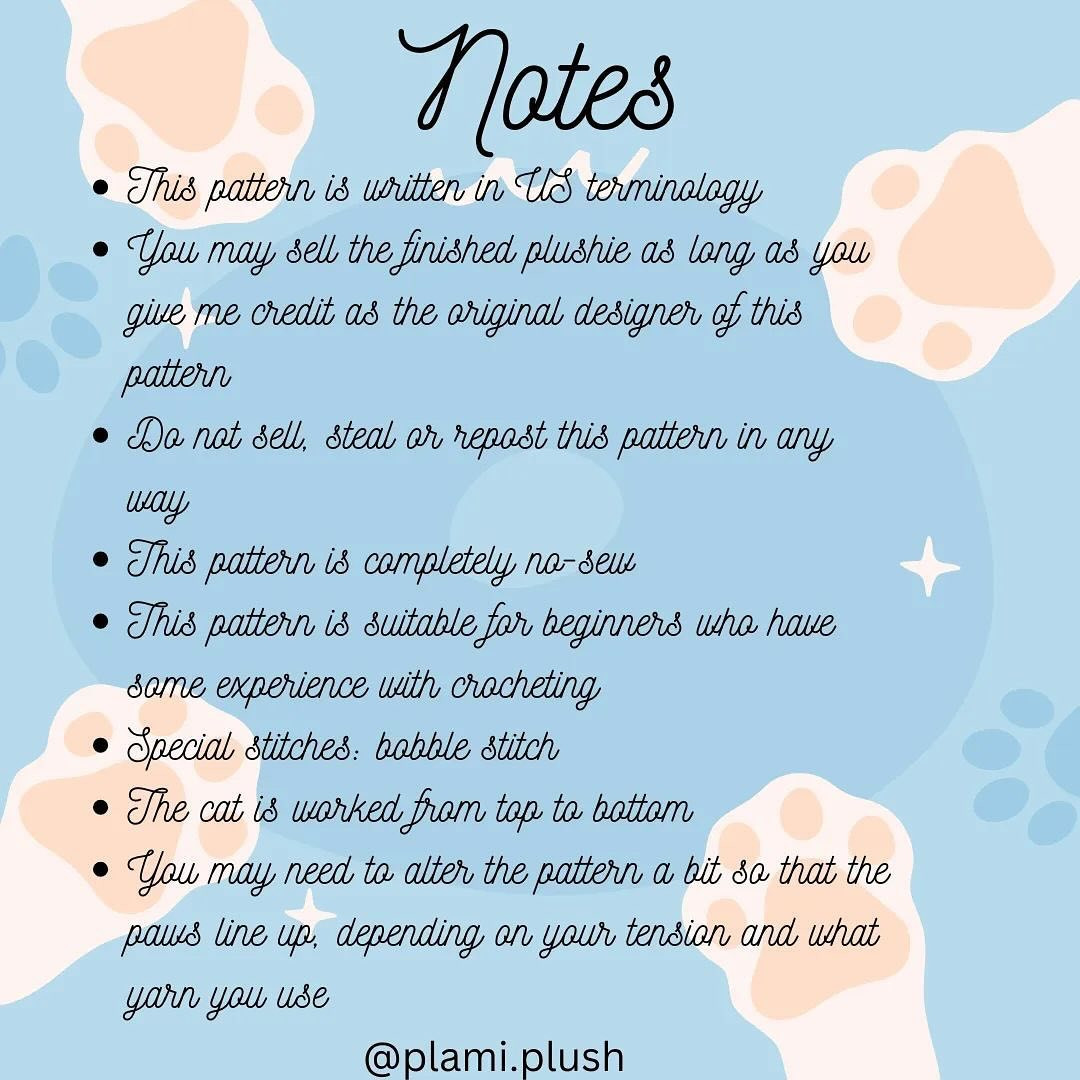 Notes
• This pattern is written in US terminology
• You may sell the finished plushie as long as you
give me credit as the original designer of this
pattern
• Do not sell, steal or repost this pattern in any
way
• This pattern is completely no-sew
• This pattern is suitable for beginners who have
some experience with crocheting
• Special stitches: bobble stitch
• The cat is worked from top to bottom
• You may need to alter the pattern a bit so that the
paws line up, depending on your tension and what
yarn you use
@plami.plush